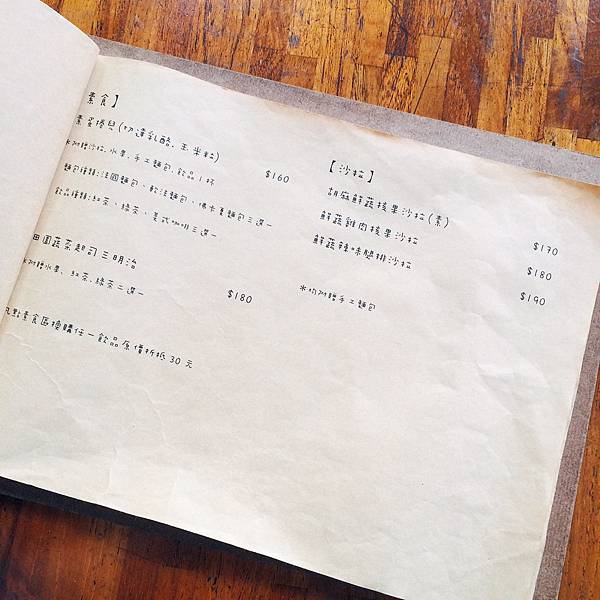 素食】
素蛋捲兒(切達乳酪、玉米粒)
*附贈沙拉、水果、手工麵包、飲品1杯 $160
麵包種類:法國麵包、軟法麵包、佛卡夏麵包三選一
飲品種類:紅茶、綠茶、美式咖啡三選一
田園蔬菜起司三明治
*附贈水果、紅茶、綠茶二選一 $180
點素食區換購任一飲品原價折抵30元
【沙拉】
胡麻鮮蔬核果沙拉(素) $170
鮮蔬雞肉核果沙拉 $180
鮮蔬辣味腿排沙拉 $190
*均附贈手工麵包